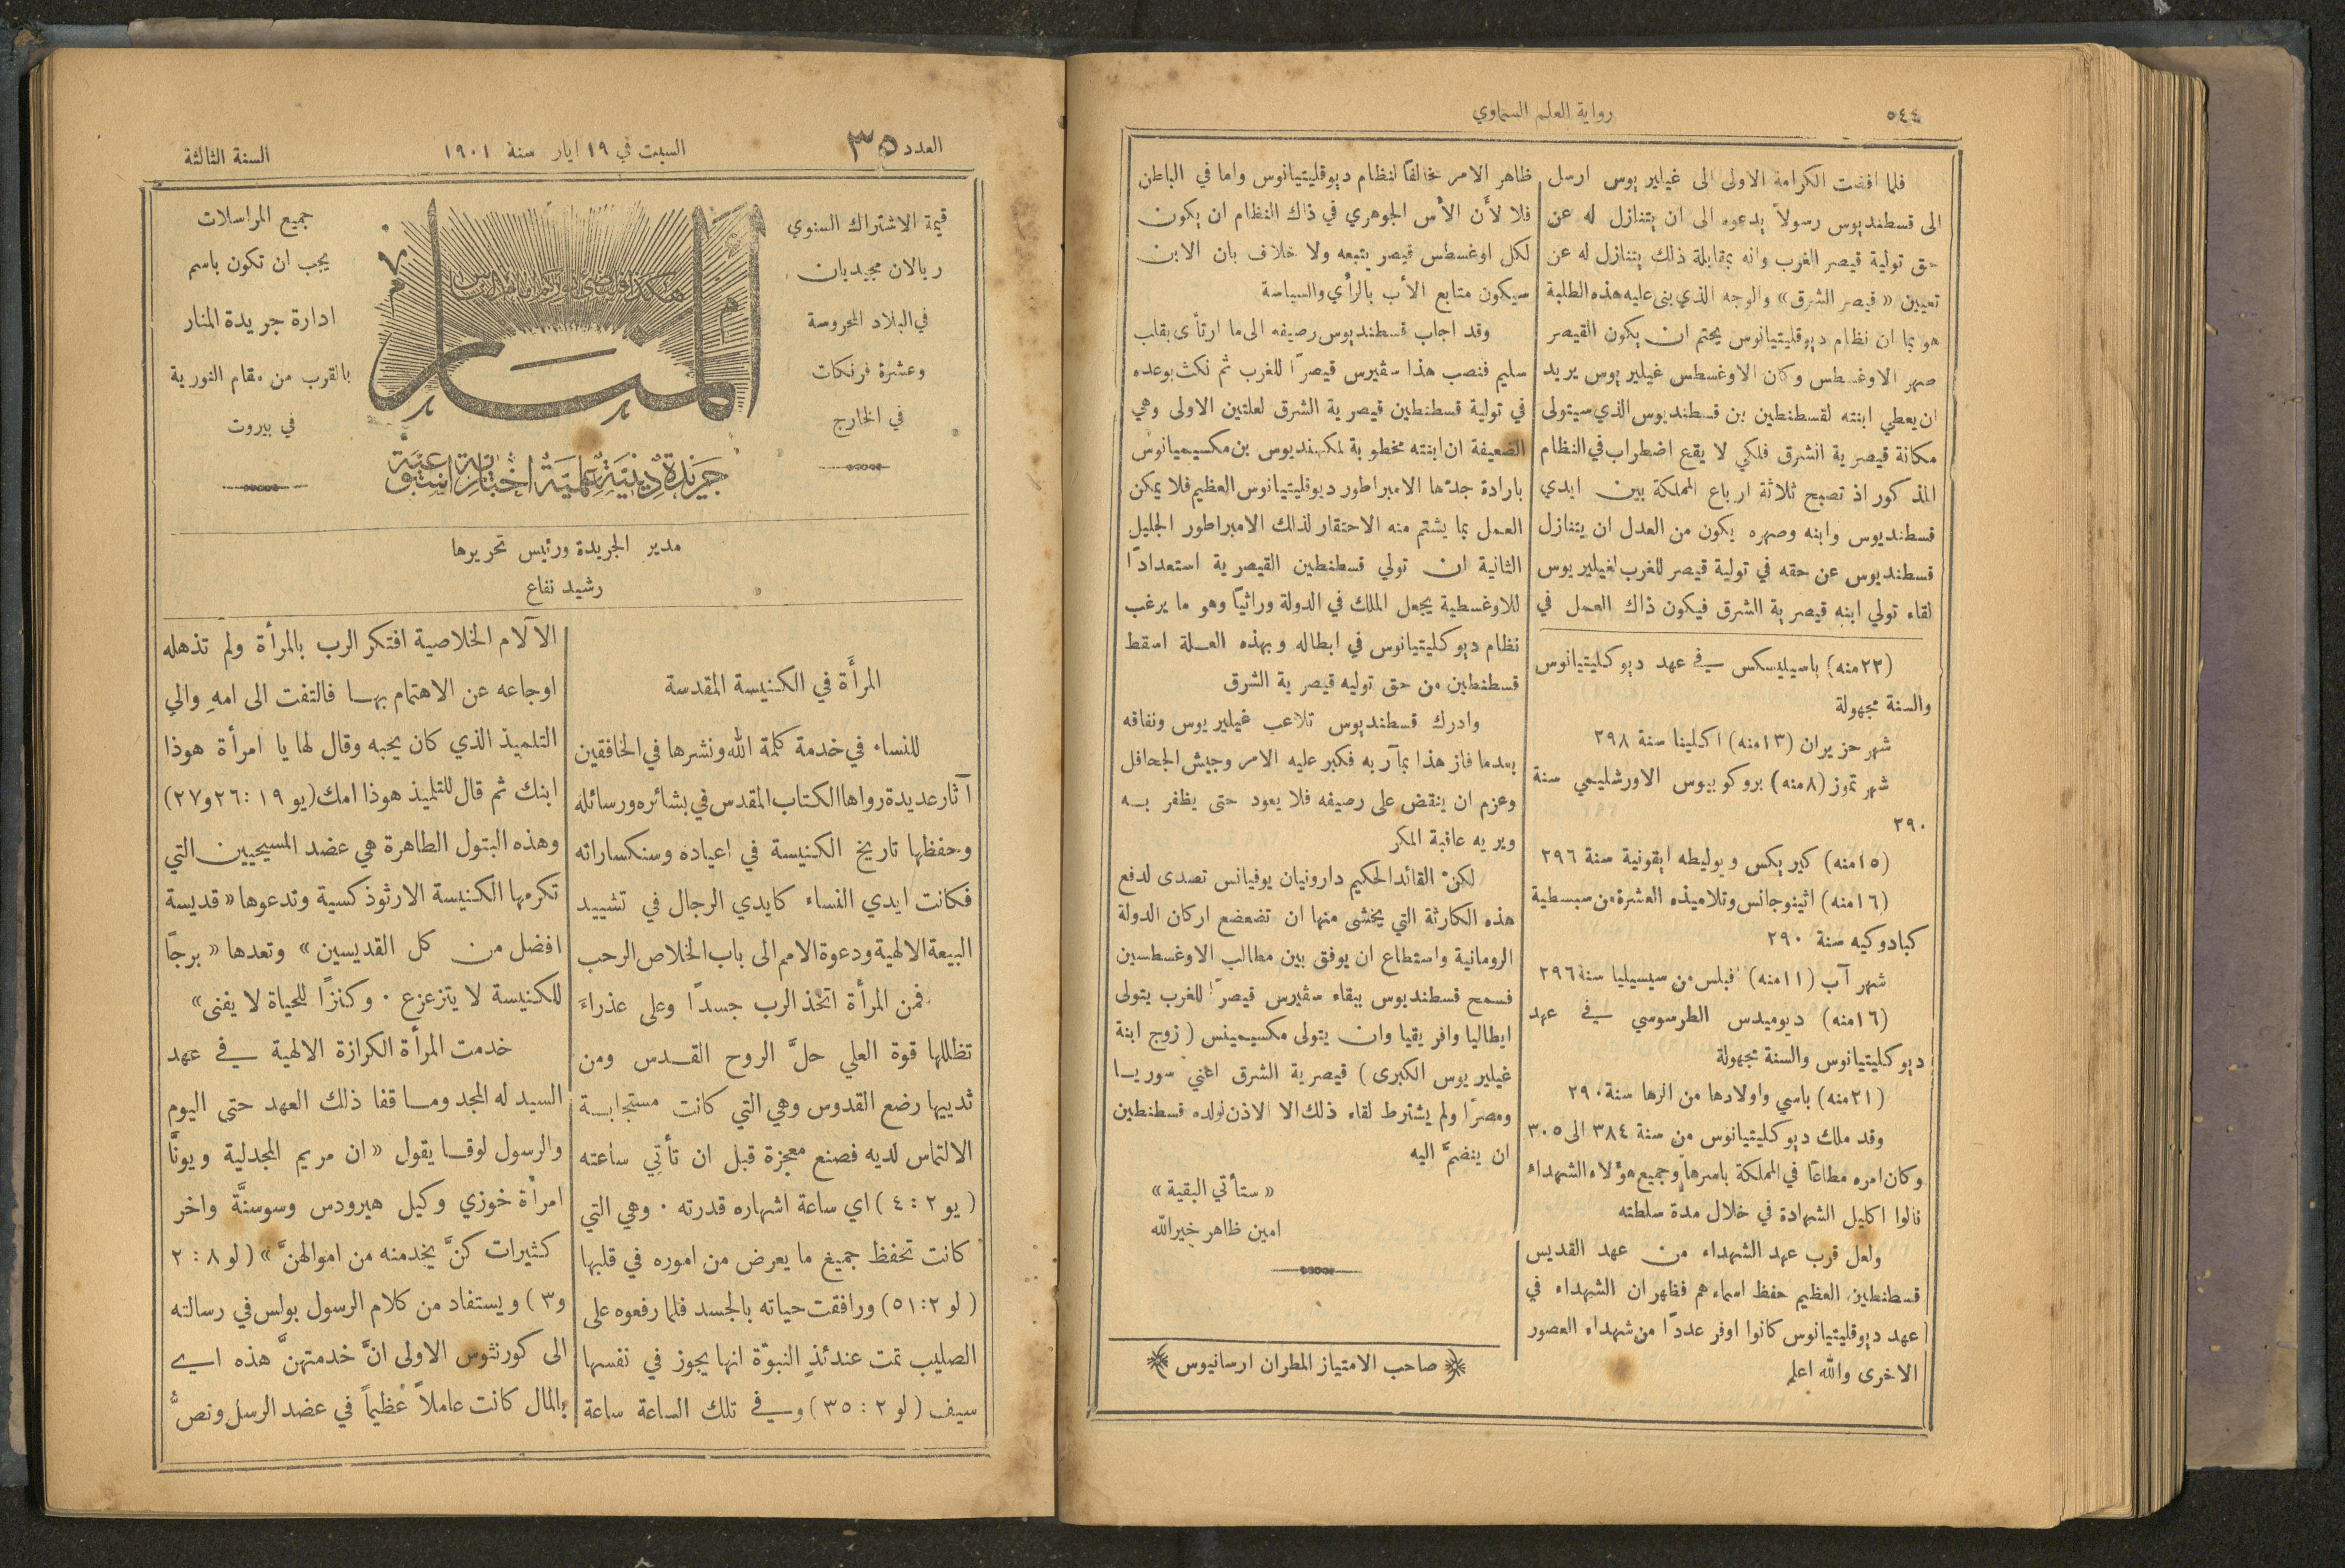 ٥٤٤
رواية العلم السماوي
فلما افضت الكرامة الاولى الى غيليريوس ارسل
الى قسطنديوس رسولاً يدعوه الى ان يتنازل له عن
حق تولية قيصر الغرب وانه بمقابلة ذلك يتنازل له عن
تعيين « قيصر الشرق » والوجه الذي بنى عليه هذه الطلبة
هو بما ان نظام ديوقليتيانوس يحتم ان يكون القيصر
صهر الاوغسطس وكان الاوغسطس غيليريوس يريد
ان يعطي ابنته لقسطنطين بن قسطنديوس الذي سيتولى
مكانة قيصرية الشرق فلكي لا يقع اضطراب في النظام
المذكور اذ تصبح ثلاثة ارباع المملكة بين ايدي
قسطنديوس وابنه وصهره يكون من العدل ان يتنازل
قسطنديوس عن حقه في تولية قيصر للغرب لغيليريوس
لقاء تولي ابنه قيصرية الشرق فيكون ذاك العمل في
(٢٢منه) باسيليسكس في عهد ديوكليتيانوس
والسنة مجهولة
شهر حزيران (١٣منه) اكلينا سنة ٢٩٨
شهر تموز (٨منه) بروكوبيوس الاورشليمي سنة
٢٩٠
(١٥منه) كيريكس ويوليطه ايقونية سنة ٢٩٦
(١٦منه) اثينوجانس وتلاميذه العشرة من سبسطية
كبادوكيه سنة ٢٩٠
شهر آب (١١منه) افبلس من سيسيليا سنة ٢٩٦
(١٦منه) ديوميدس الطرسوسي في عهد
ديوكليتيانوس والسنة مجهولة
(٢١منه) باسي واولادها من الرها سنة ٢٩٠
وقد ملك ديوكليتيانوس من سنة ٣٨٤ الى ٣٠٥
وكان امره مطاعًا في المملكة باسرها وجميع هؤلاء الشهداء
نالوا اكليل الشهادة في خلال مدة سلطته
ولعل قرب عهد الشهداء من عهد القديس
قسطنطين العظيم حفظ اسماءهم فظهر ان الشهداء في
عهد ديوقليتيانوس كانوا اوفر عددًا من شهداء العصور
الاخرى والله اعلم
ظاهر الامر مخالفًا لنظام ديوقليتيانوس واما في الباطن
فلا لأن الأس الجوهري في ذاك النظام ان يكون
لكل اوغسطس قيصر يتبعه ولا خلاف بان الابن
سيكون متابع الأب بالرأي والسياسة
وقد اجاب قسطنديوس رصيفه الى ما ارتأى بقلب
سليم فنصب هذا سڤيرس قيصرًا للغرب ثم نكث بوعده
في تولية قسطنطين قيصرية الشرق لعلتين الاولى وهي
الضعيفة ان ابنته مخطوبة لمكسنديوس بن مكسيميانوس
بارادة جدها الامبراطور ديوقليتيانوس العظيم فلا يمكن
العمل بما يشتم منه الاحتقار لذلك الامبراطور الجليل
الثانية ان تولي قسطنطين القيصرية استعدادًا
للاوغسطية يجعل الملك في الدولة وراثيًا وهو ما يرغب
نظام ديوكليتيانوس في ابطاله وبهذه العلة اسقط
قسطنطين من حق توليه قيصرية الشرق
وادرك قسطنديوس تلاعب غيليريوس ونفاقه
بعدما فاز هذا بمآربه فكبر عليه الامر وجيش الجحافل
وعزم ان ينقض على رصيفه فلا يعود حتى يظفر به
ويريه عاقبة المكر
لكن القائد الحكيم دارونيان يوفيانس تصدى لدفع
هذه الكارثة التي يخشى منها ان تضعضع اركان الدولة
الرومانية واستطاع ان يوفق بين مطالب الاوغسطسين
فسمح قسطنديوس ببقاء سڤيرس قيصرًا للغرب يتولى
ايطاليا وافريقيا وان يتولى مكسيمينس ( زوج ابنة
غيليريوس الكبرى ) قيصرية الشرق اعني سوريا
ومصرًا ولم يشترط لقاء ذلك الا الاذن لولده قسطنطين
ان ينضمَّ اليه
« ستأتي البقية »
امين ظاهر خيرالله
صاحب الامتياز المطران ارسانيوس
العدد ٣٥
السبت في ١٩ ايار سنة ١٩٠١
السنة الثالثة
قيمة الاشتراك السنوي
ريالان مجيديان
في البلاد المحروسة
وعشرة فرنكات
في الخارج
هكذا فليضئ نوركم قدام الناس
المنار
جريدة دينية علمية اخبارية اسبوعية
جميع المراسلات
يجب ان تكون باسم
ادارة جريدة المنار
بالقرب من مقام النورية
في بيروت
مدير الجريدة ورئيس تحريرها
رشيد نفاع
المرأَة في الكنيسة المقدسة
للنساء في خدمة كلمة الله ونشرها في الخافقين
آثار عديدة رواها الكتاب المقدس في بشائره ورسائله
وحفظها تاريخ الكنيسة في اعياده وسنكساراته
فكانت ايدي النساء كايدي الرجال في تشييد
البيعة الالهية ودعوة الامم الى باب الخلاص الرحب
فمن المرأة اتخذ الرب جسدًا وعلى عذراءَ
تظللها قوة العلي حلَّ الروح القدس ومن
ثدييها رضع القدوس وهي التي كانت مستجابة
الالتماس لديه فصنع معجزة قبل ان تأتي ساعته
( يو ٢ : ٤ ) اي ساعة اشهاره قدرته ٠ وهي التي
كانت تحفظ جميع ما يعرض من اموره في قلبها
( لو ٢: ٥١) ورافقت حياته بالجسد فلما رفعوه على
الصليب تمت عندئذٍ النبوّة انها يجوز في نفسها
سيف ( لو ٢ : ٣٥ ) وفي تلك الساعة ساعة
الآلام الخلاصية افتكر الرب بالمرأة ولم تذهله
اوجاعه عن الاهتمام بها فالتفت الى امهِ والي
التلميذ الذي كان يحبه وقال لها يا امرأة هوذا
ابنك ثم قال للتلميذ هوذا امك (يو ١٩ : ٢٦ و٢٧)
وهذه البتول الطاهرة هي عضد المسيحيين التي
تكرمها الكنيسة الارثوذكسية وتدعوها « قديسة
افضل من كل القديسين » وتعدها « برجًا
للكنيسة لا يتزعزع ٠ وكنزًا للحياة لا يفنى »
خدمت المرأة الكرازة الالهية في عهد
السيد له المجد وما قفا ذلك العهد حتى اليوم
والرسول لوقا يقول « ان مريم المجدلية ويونَّا
امرأة خوزي وكيل هيرودس وسوسنَّة واخر
كثيرات كنَّ يخدمنه من اموالهنَّ » ( لو ٨ : ٢
و٣ ) ويستفاد من كلام الرسول بولس في رسالته
الى كورنثوس الاولى انَّ خدمتهنَّ هذه اي
بالمال كانت عاملاً عظيماً في عضد الرسل ونصُّ